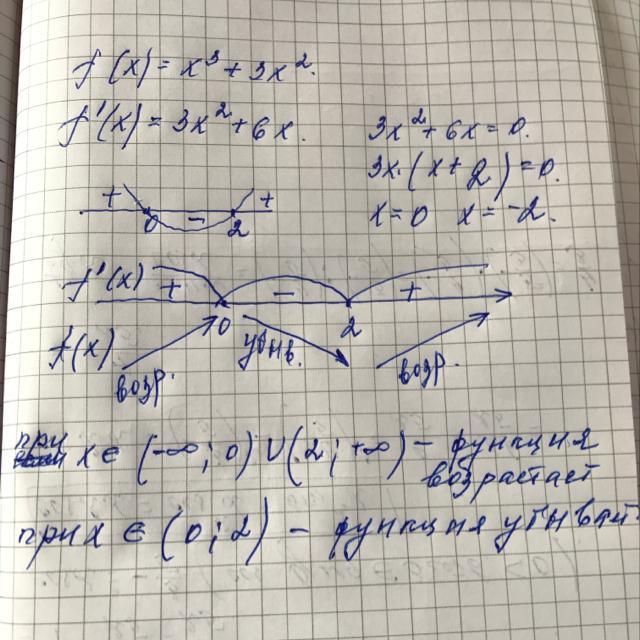 f(x) = x³ + 3x².
f'(x) = 3x² + 6x.
3x² + 6x = 0.
3x·(x + 2) = 0.
x = 0 x = -2.
+ - +
0 2
f'(x) + - +
0 2
f(x) возр. убыв. возр.
при x ∈ (-∞; 0) ∪ (2; +∞) – функция
возрастает
при x ∈ (0; 2) – функция убывает